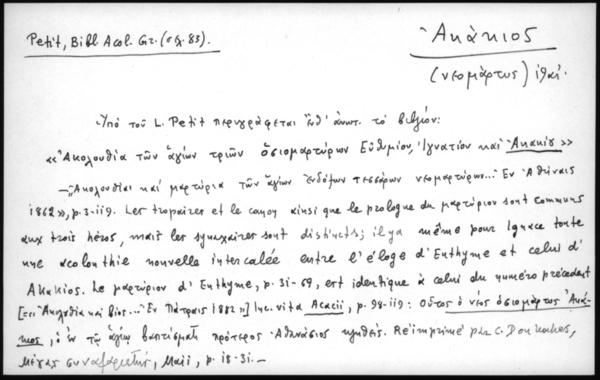 Petit, Bibl Acol. Gr. (σελ. 83).
Ἀκάκιος
(νεομάρτυς) ιθ' αἰ.
Ὑπὸ τοῦ L. Petit περιγράφεται ἔνθ' ἀνωτ. τὸ βιβλίον:
«Ἀκολουθία τῶν ἁγίων τριῶν ὁσιομαρτύρων Εὐθυμίου, Ἰγνατίου καὶ Ἀκακίου»
— "Ἀκολουθίαι καὶ μαρτύρια τῶν ἁγίων ἐνδόξων τεσσάρων νεομαρτύρων... Ἐν Ἀθήναις
1862», p. 3-119. Les tropaires et le canon ainsi que le prologue du μαρτύριον sont communs
aux trois héros, mais les synaxaires sont distincts; il y a même pour Ignace toute
une acolouthie nouvelle intercalée entre l'éloge d'Euthyme et celui d'
Akakios. Le μαρτύριον d'Euthyme, p. 31-69, est identique à celui du numéro précédent
[=«Ἀκολουθία καὶ βίος... Ἐν Πάτραις 1882»] Inc. vita Acacii, p. 98-119: Οὗτος ὁ νέος ὁσιομάρτυς Ἀκά-
κιος, ὁ ἐν τῷ ἁγίῳ βαπτίσματι πρότερος Ἀθανάσιος κληθείς. Réimprimé par C. Doukakes,
Μέγας συναξαριστής, Μαΐι, p. 18-31.—